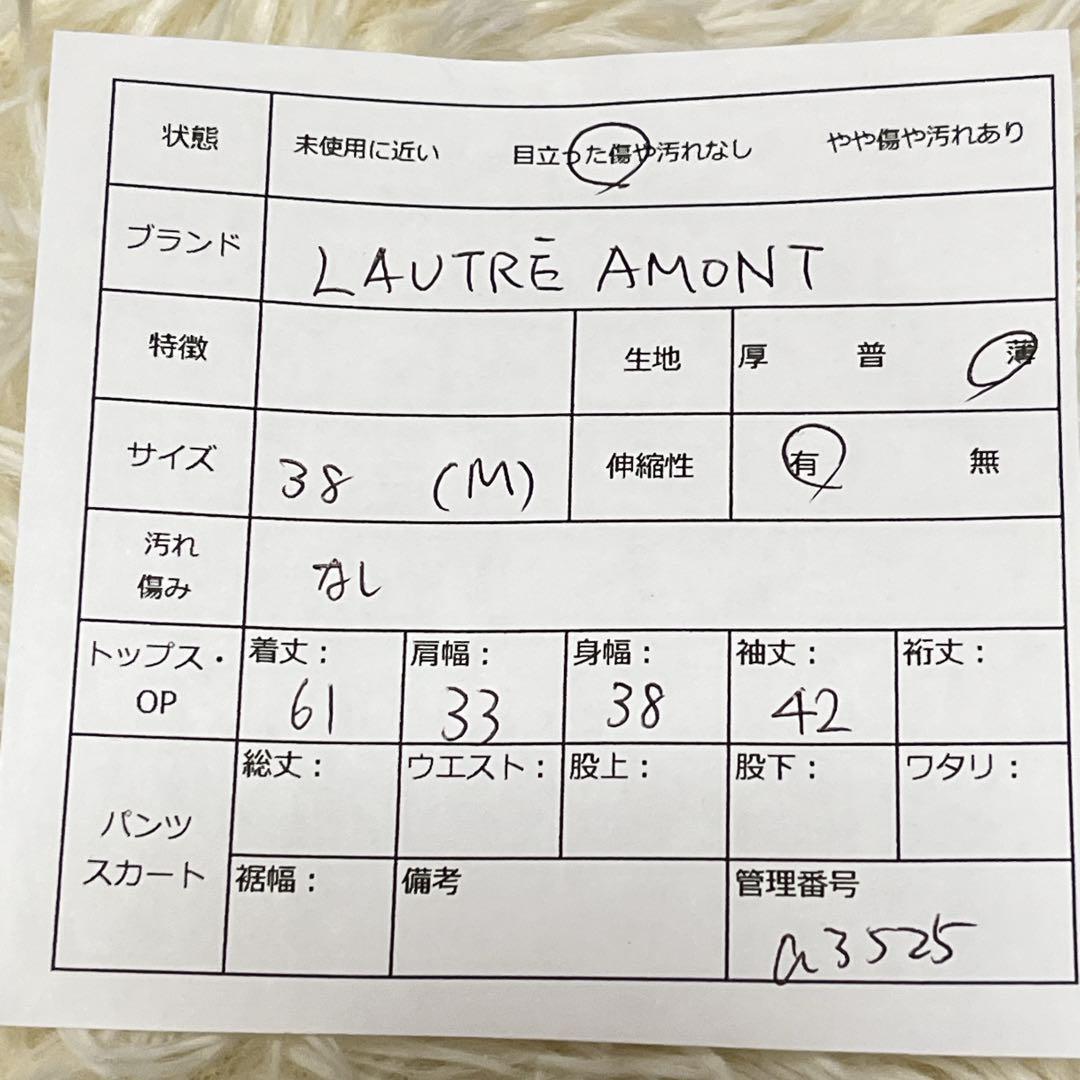 状態 未使用に近い 目立った傷や汚れなし やや傷や汚れあり
ブランド LAUTRĒ AMONT
特徴 生地 厚 普 薄
サイズ 38 (M) 伸縮性 有 無
汚れ
傷み
なし
トップス・
OP
着丈： 肩幅： 身幅： 袖丈： 裄丈：
61 33 38 42
パンツ
スカート
総丈： ウエスト： 股上： 股下： ワタリ：
裾幅： 備考 管理番号
a3525